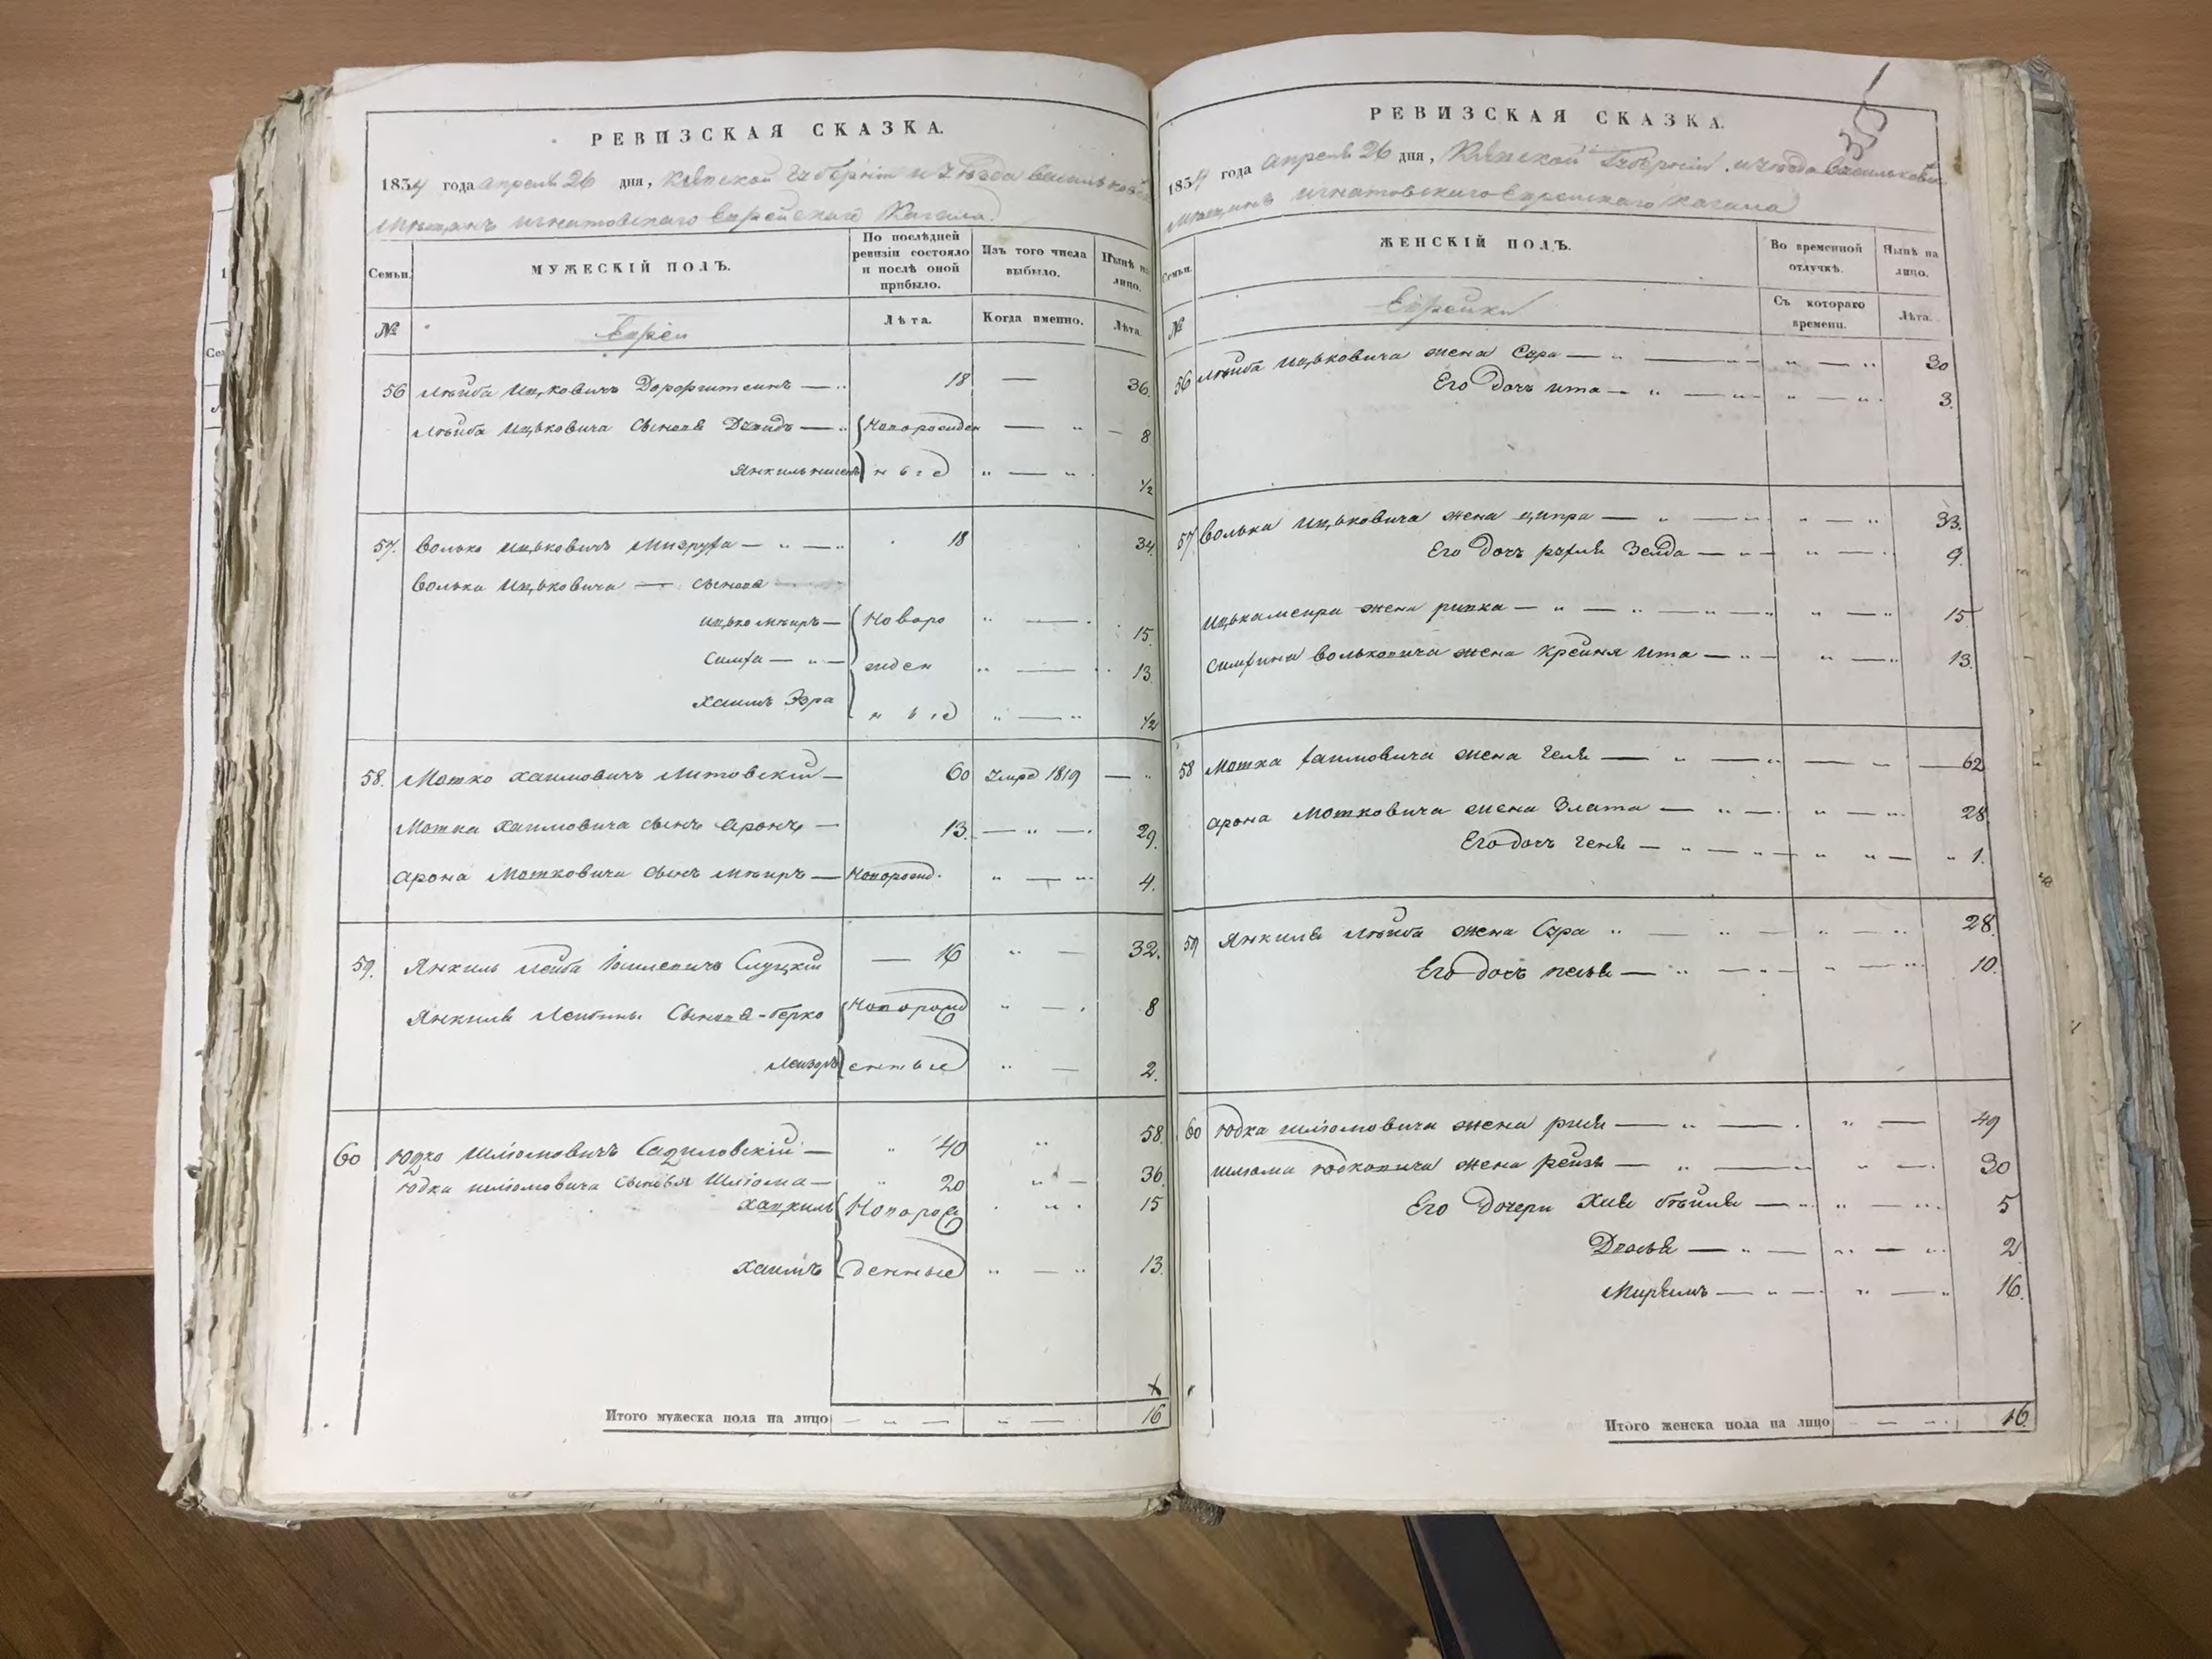 РЕВИЗСКАЯ СКАЗКА.
1834 года апреля 26 дня, Кіевской Губерніи и уѣзда Васильков
Мѣщанъ Игнатовскаго Еврейскаго Кагала.
Семьи.
МУЖЕСКІЙ ПОЛЪ.
По послѣдней ревизіи состояло и послѣ оной прибыло.
Изъ того числа выбыло.
Нынѣ на лицо.
№
Евреи
Лѣта.
Когда именно.
Лѣта.
56 Лейба Ицковичъ Дорфгитеинъ — 18 — 36.
Лейба Ицьковича сыновя Давидъ — Новорожден — 8
Янкиль ные — 1/2
57. Волько Ицьковичъ Мизруха — 18 34.
Волька Ицьковича — сыновя
Ицько Мѣиръ — Новоро — 15
Симха — жден — 13
Хаимъ Эзра ные — 1/2
58. Мотко Хаимовичъ Литовскій — 60 Умре 1819 —
Мотка Хаимовича сынъ Аронъ — 13. — 29.
Арона Мотковича сынъ Мѣиръ — Новорожд. — 4.
59. Янкиль Лейба Слуцкій — 16 — 32.
Янкиля Лейбины Сыновя - Берко Новорожд — 8
Лейзоръ енные — 2.
60 Юдко Шліомовичъ Садиловскій — 40 58.
Юдка Шліомовича сыновья Шліома — 20 — 36.
Хацкиль Новорож 15
Хаимъ денные — 13.
Итого мужеска пола на лицо — — 16
РЕВИЗСКАЯ СКАЗКА.
1834 года апреля 26 дня, Кіевской Губерніи и уѣзда Васильков
Мѣщанъ Игнатовскаго Еврейскаго Кагала
Семьи.
ЖЕНСКІЙ ПОЛЪ.
Во временной отлучкѣ.
Нынѣ на лицо.
№
Еврейки
Съ котораго времени.
Лѣта.
56 Лейба Ицьковича жена Сура — 30
Его дочъ Ита — 3.
57 Волька Ицьковича жена Ципра — 33.
Его дочъ Рухля Зелда — 9.
Ицька Меира жена Ривка — 15
Симхина Вольковича жена Крейня Ита — 13.
58 Мотка Хаимовича жена Геля — 62
Арона Мотковича жена Злата — 28
Его дочъ Геня — 1.
59 Янкиля Лѣйба жена Сура — 28.
Его дочъ Песя — 10.
60 Юдка Шліомовича жена Рися — 49
Шліома Юдковича жена Рейзя — 30
Его Дочери Хая Бѣйля — 5
Двося — 2
Мирьямъ — 16.
Итого женска пола на лицо — 16.